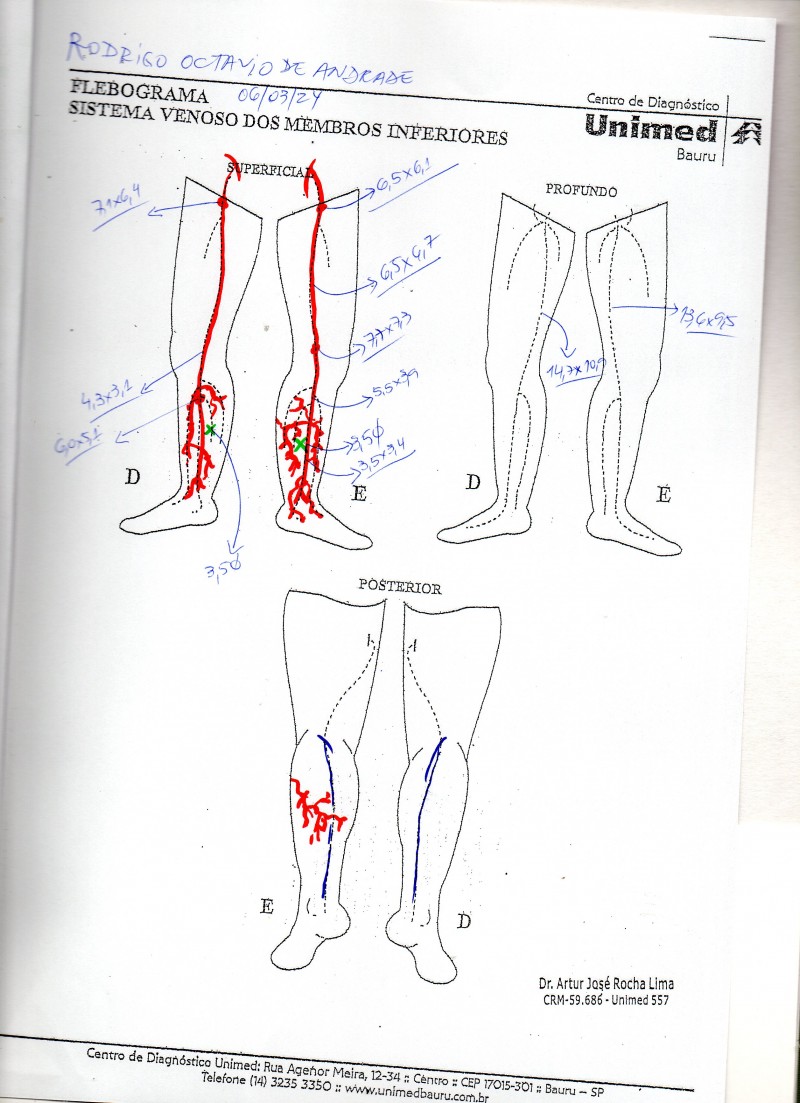 RODRIGO OCTAVIO DE ANDRADE
FLEBOGRAMA 06/03/24
SISTEMA VENOSO DOS MEMBROS INFERIORES
Centro de Diagnóstico
Unimed
Bauru
SUPERFICIAL
PROFUNDO
7,1x6,4
6,5x6,1
6,5x4,7
7,7x7,3
13,6x9,5
14,7x10,9
4,3x3,1
5,5x3,9
6,0x5,1
3,5Ø
3,5x3,4
D
E
D
E
3,5Ø
POSTERIOR
E
D
Dr. Artur José Rocha Lima
CRM-59.686 - Unimed 557
Centro de Diagnóstico Unimed: Rua Agenor Meira, 12-34 :: Centro :: CEP 17015-301 :: Bauru – SP
Telefone (14) 3235 3350 :: www.unimedbauru.com.br